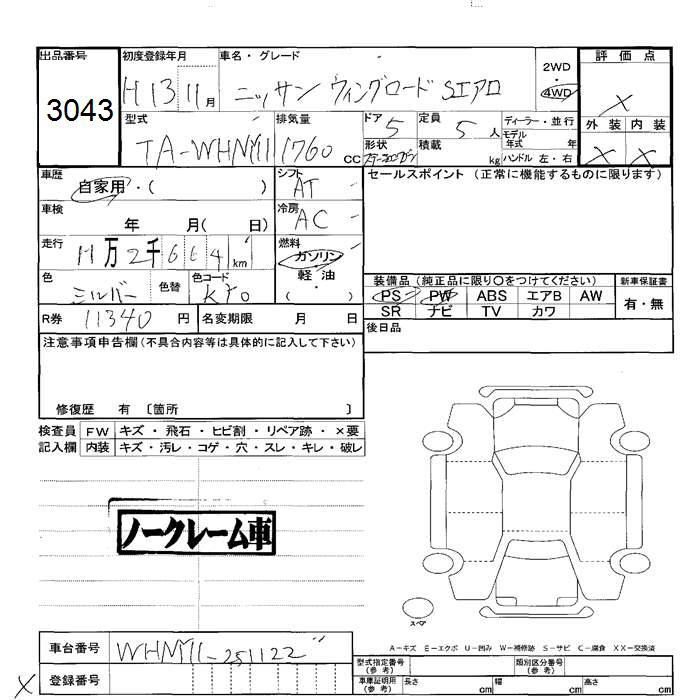 出品番号 初度登録年月 車名・グレード 2WD 評価点
3043 H13 11月 ニッサン ウイングロード Sエアロ 4WD X
型式 排気量 ドア 5 定員 5人 ディーラー・並行 外装 内装
TA-WHNY11 1760 CC 形状 積載 kg モデル年式 年 X X
ハンドル 左・右
車歴 自家用・( ) シフト AT セールスポイント (正常に機能するものに限ります)
車検 年 月( 日) 冷房 AC
走行 万2千664km 燃料 ガソリン
色 シルバー 色替 色コード 軽油 ( )
装備品 (純正品に限り○をつけてください) 新車保証書
PS PW ABS エアB AW 有・無
SR ナビ TV カワ
R券 11340円 名変期限 月 日 後日品
注意事項申告欄(不具合内容等は具体的に記入して下さい)
修復歴 有 〔箇所 〕
検査員 FW キズ・飛石・ヒビ割・リペア跡・×要
記入欄 内装 キズ・汚レ・コゲ・穴・スレ・キレ・破レ
ノークレーム車
スペア
A-キズ E-エクボ U-凹み W-補修跡 S-サビ C-腐食 XX-交換済
車台番号 WHNY11-251122
型式指定番号(参考) 類別区分番号(参考)
X 登録番号 車庫証明用(参考) 長さ cm 幅 cm 高さ cm